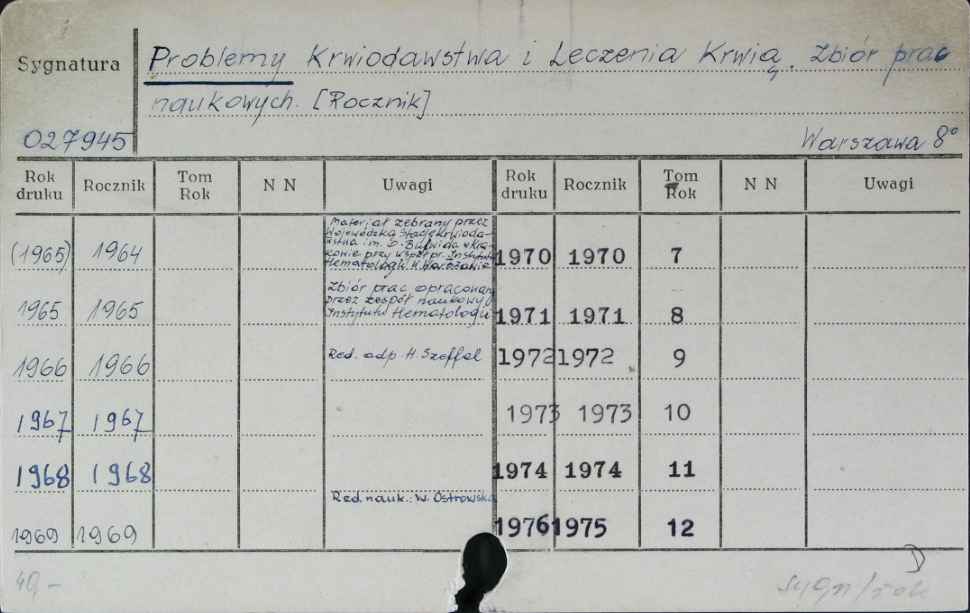 Sygnatura
Problemy Krwiodawstwa i Leczenia Krwią. Zbiór prac
naukowych. [Rocznik]
027945
Warszawa 8°
Rok druku Rocznik Tom Rok N N Uwagi Rok druku Rocznik Tom Rok N N Uwagi
Materiał zebrany przez
Wojewódzką Stację Krwioda-
wstwa im.
przy współpr. Instytutu
Hematologii w Warszawie
(1965) 1964 1970 1970 7
Zbiór prac opracowan
przez zespół naukowy
Instytutu Hematologii
1965 1965 1971 1971 8
1966 1966 Red. adp. H. Szeffel 1972 1972 9
1967 1967 1973 1973 10
1968 1968 1974 1974 11
Red. nauk.: W. Ostrowska
1969 1969 1976 1975 12
D
49,- sygn/rok